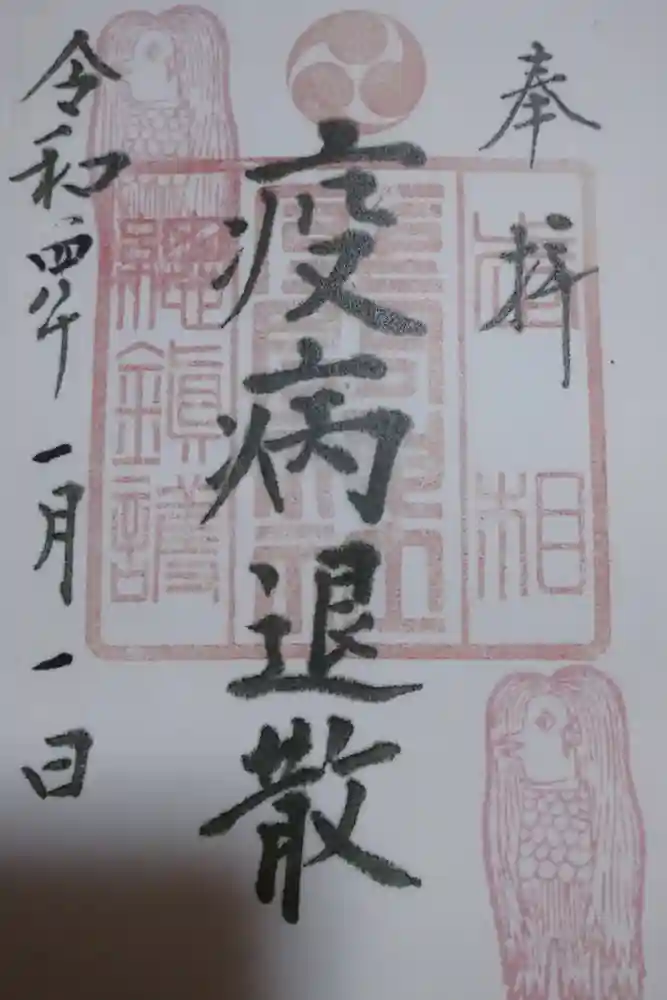 奉拝
疫病退散
總鎮護
令和四年一月一日